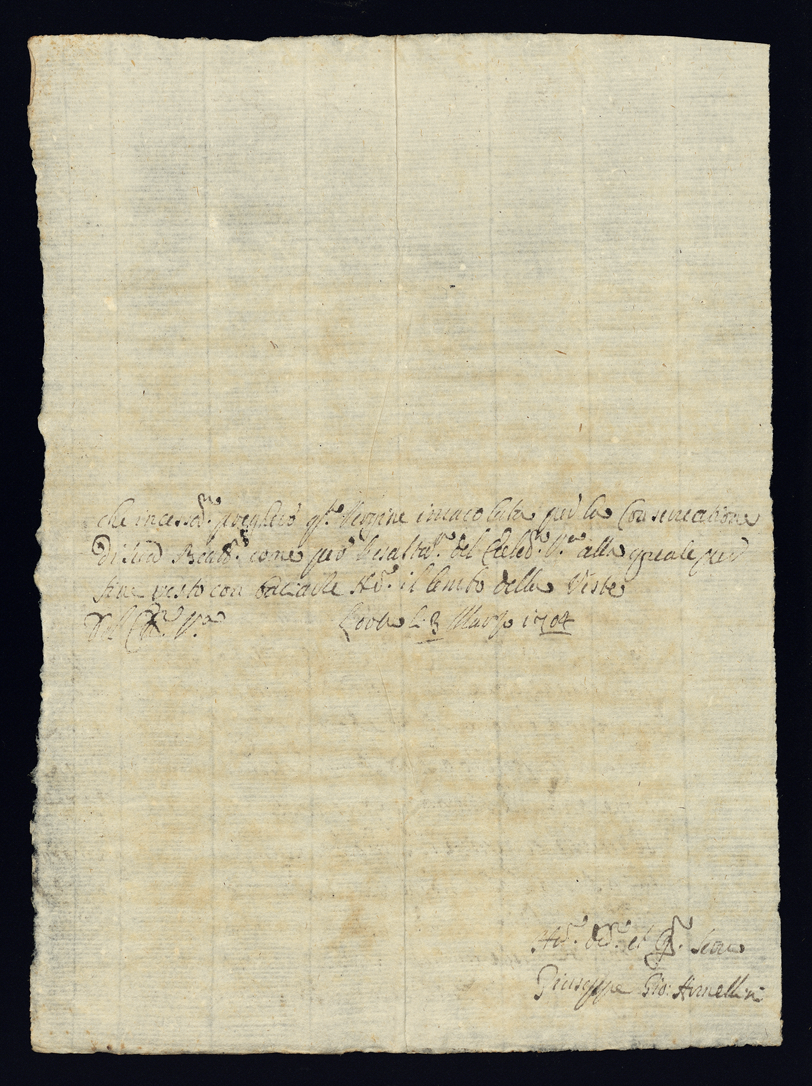 che incess.te pregherò q.ta Vergine immacolata per la Conservatione
Di Sua Beat.e come per l'esalta.ne del Eccled.e V.ra alla quale per
fine resto con baciarle H.e il lembo della Veste
Dell' V.ra li 3 Marzo 1704
H.e et Serv.e
Giuseppe Gio: Armellini